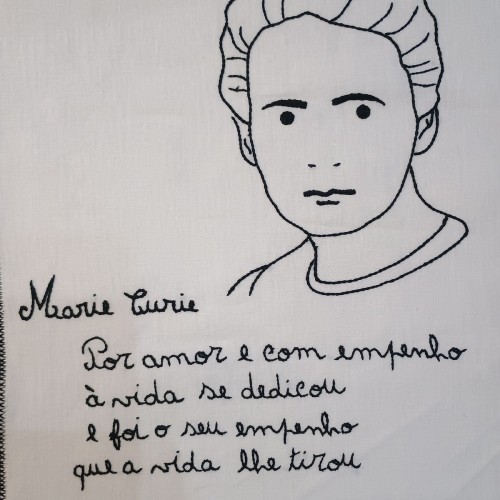 Marie Curie
Por amor e com empenho
à vida se dedicou
e foi o seu empenho
que a vida lhe tirou